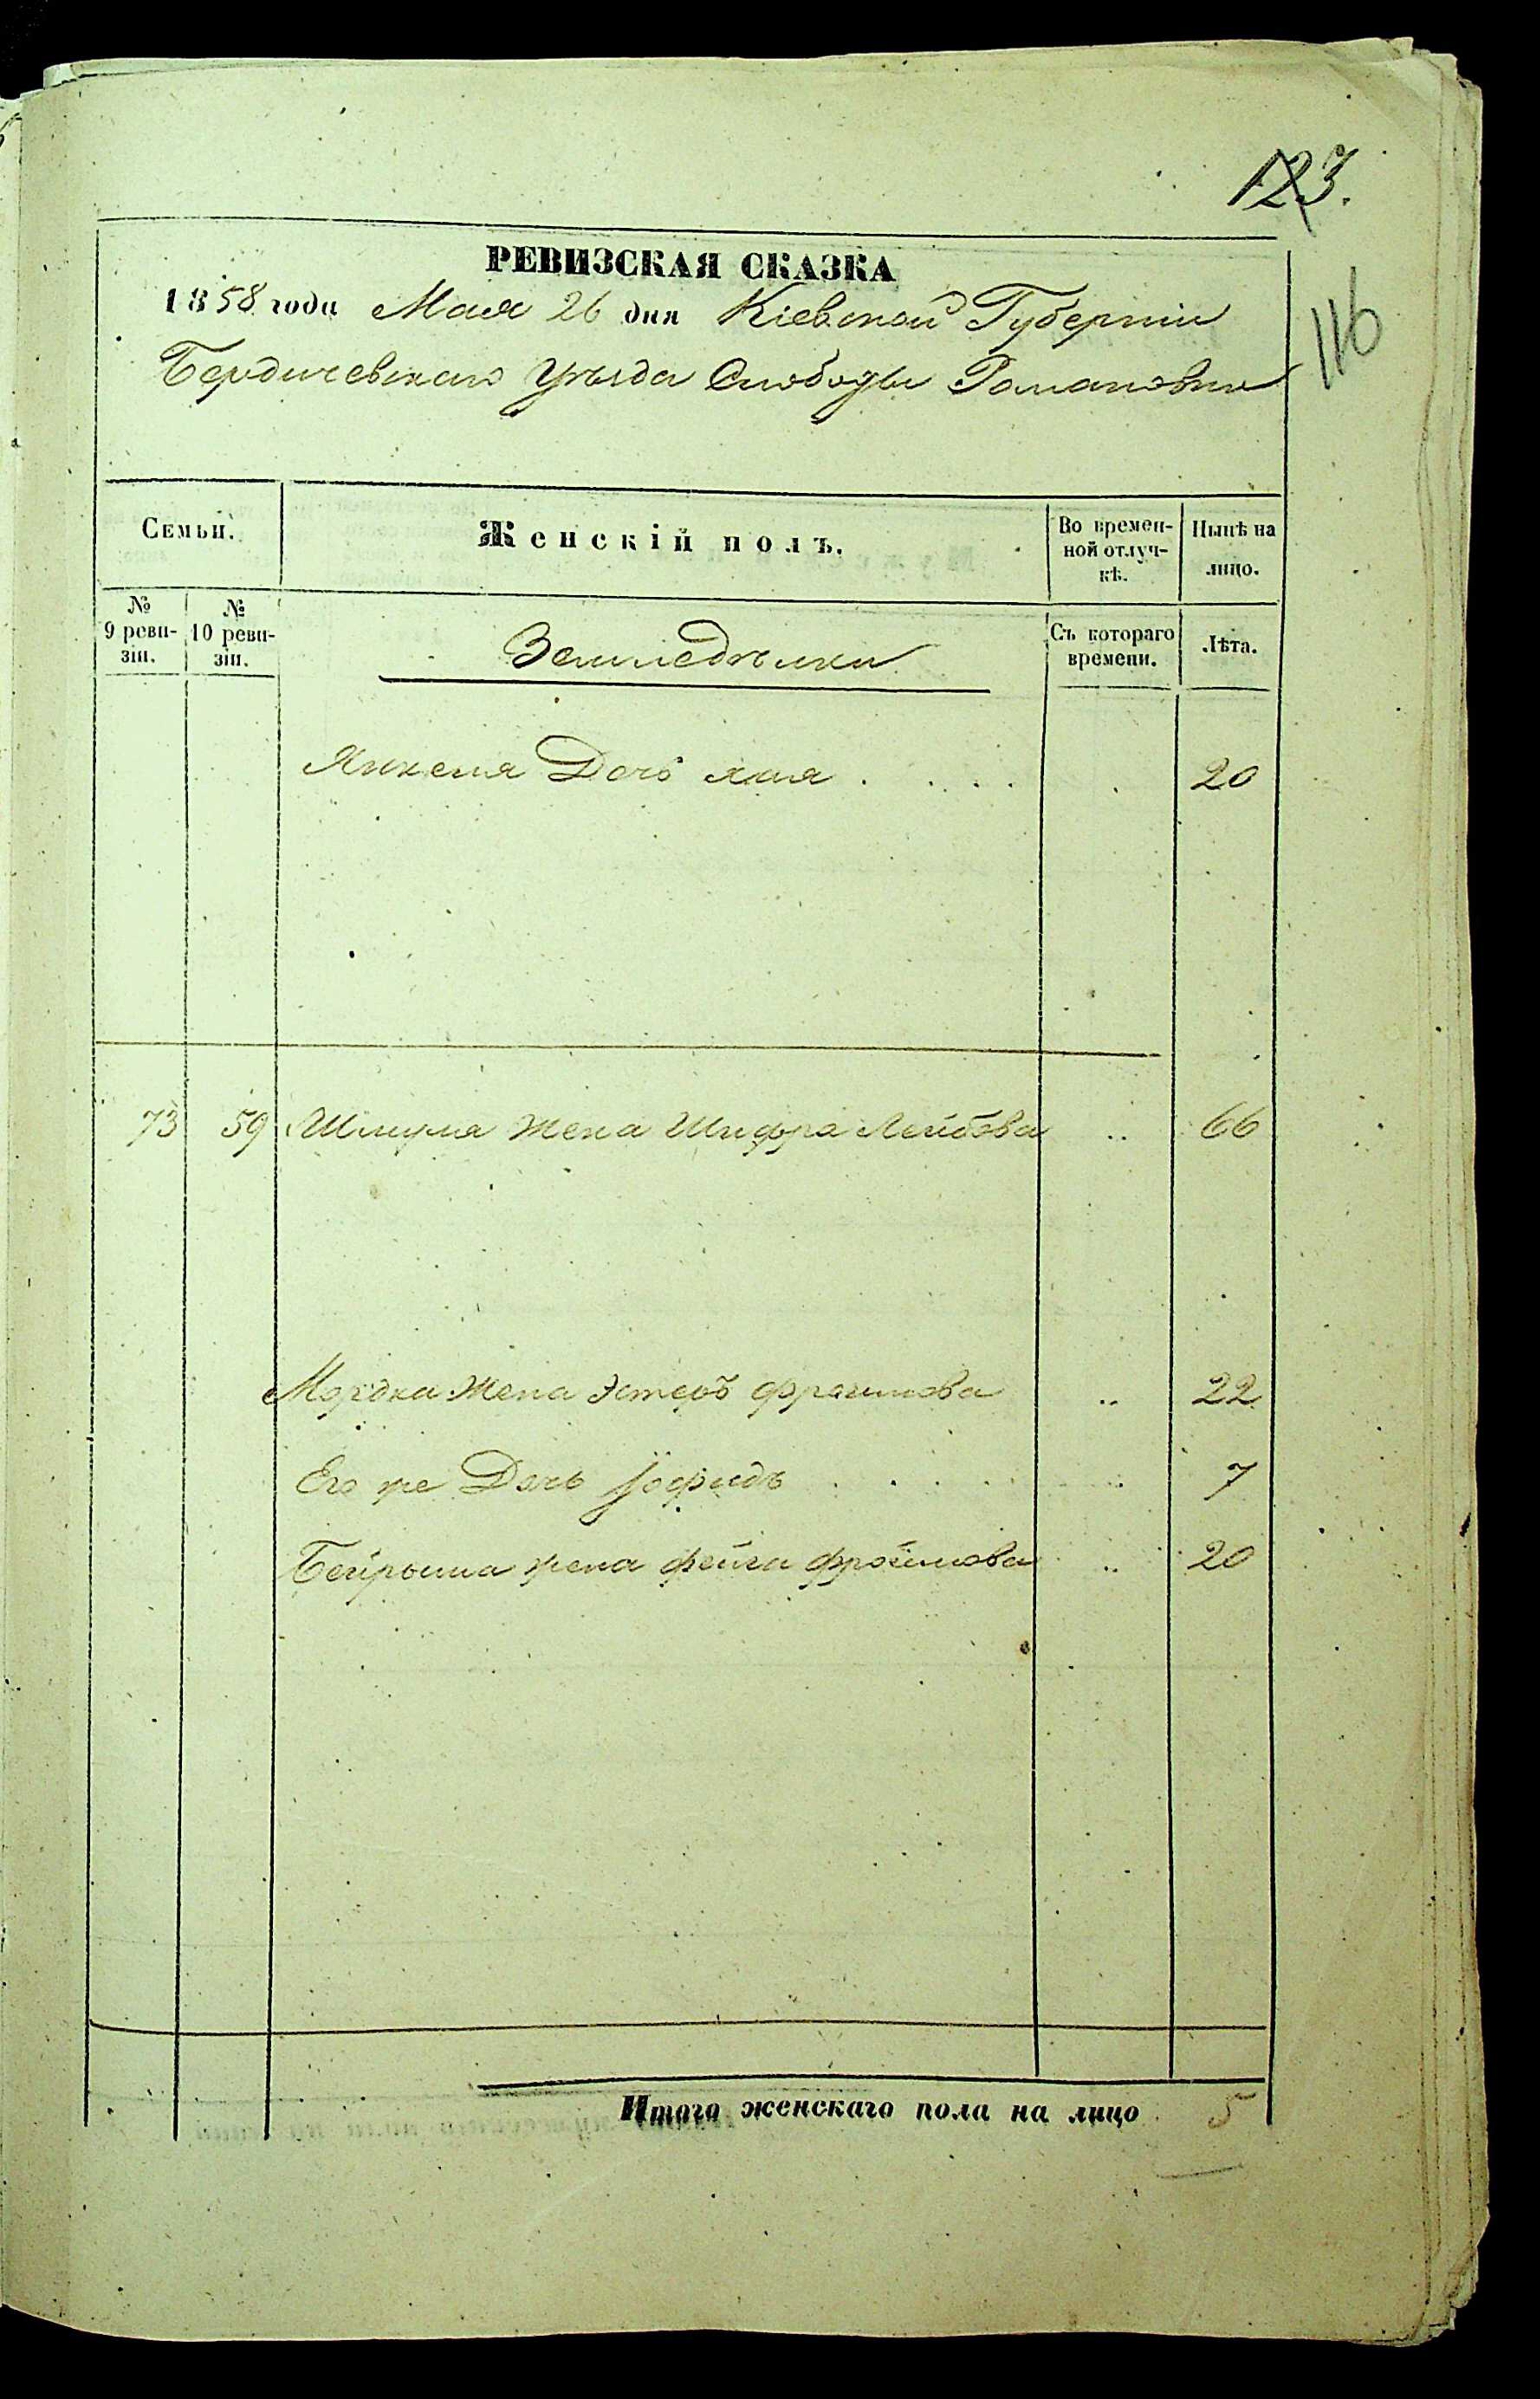 123.
116
РЕВИЗСКАЯ СКАЗКА
1858 года Мая 26 дня Кіевской Губерніи
Бердичевскаго Уѣзда Слободы Романовки
Семьи.
Женскій полъ.
Во времен-
ной отлуч-
кѣ.
Нынѣ на
лицо.
№
9 реви-
зіи.
№
10 реви-
зіи.
Земледѣльки
Съ котораго
времени.
Лѣта.
Янкеля Дочь Хая 20
73 59 Шмуля жена Шифра Лейбова 66
Мордка жена Эстеръ 22
Его же Дочь 7
жена Фейга Фроимова 20
Итого женскаго пола на лицо 5